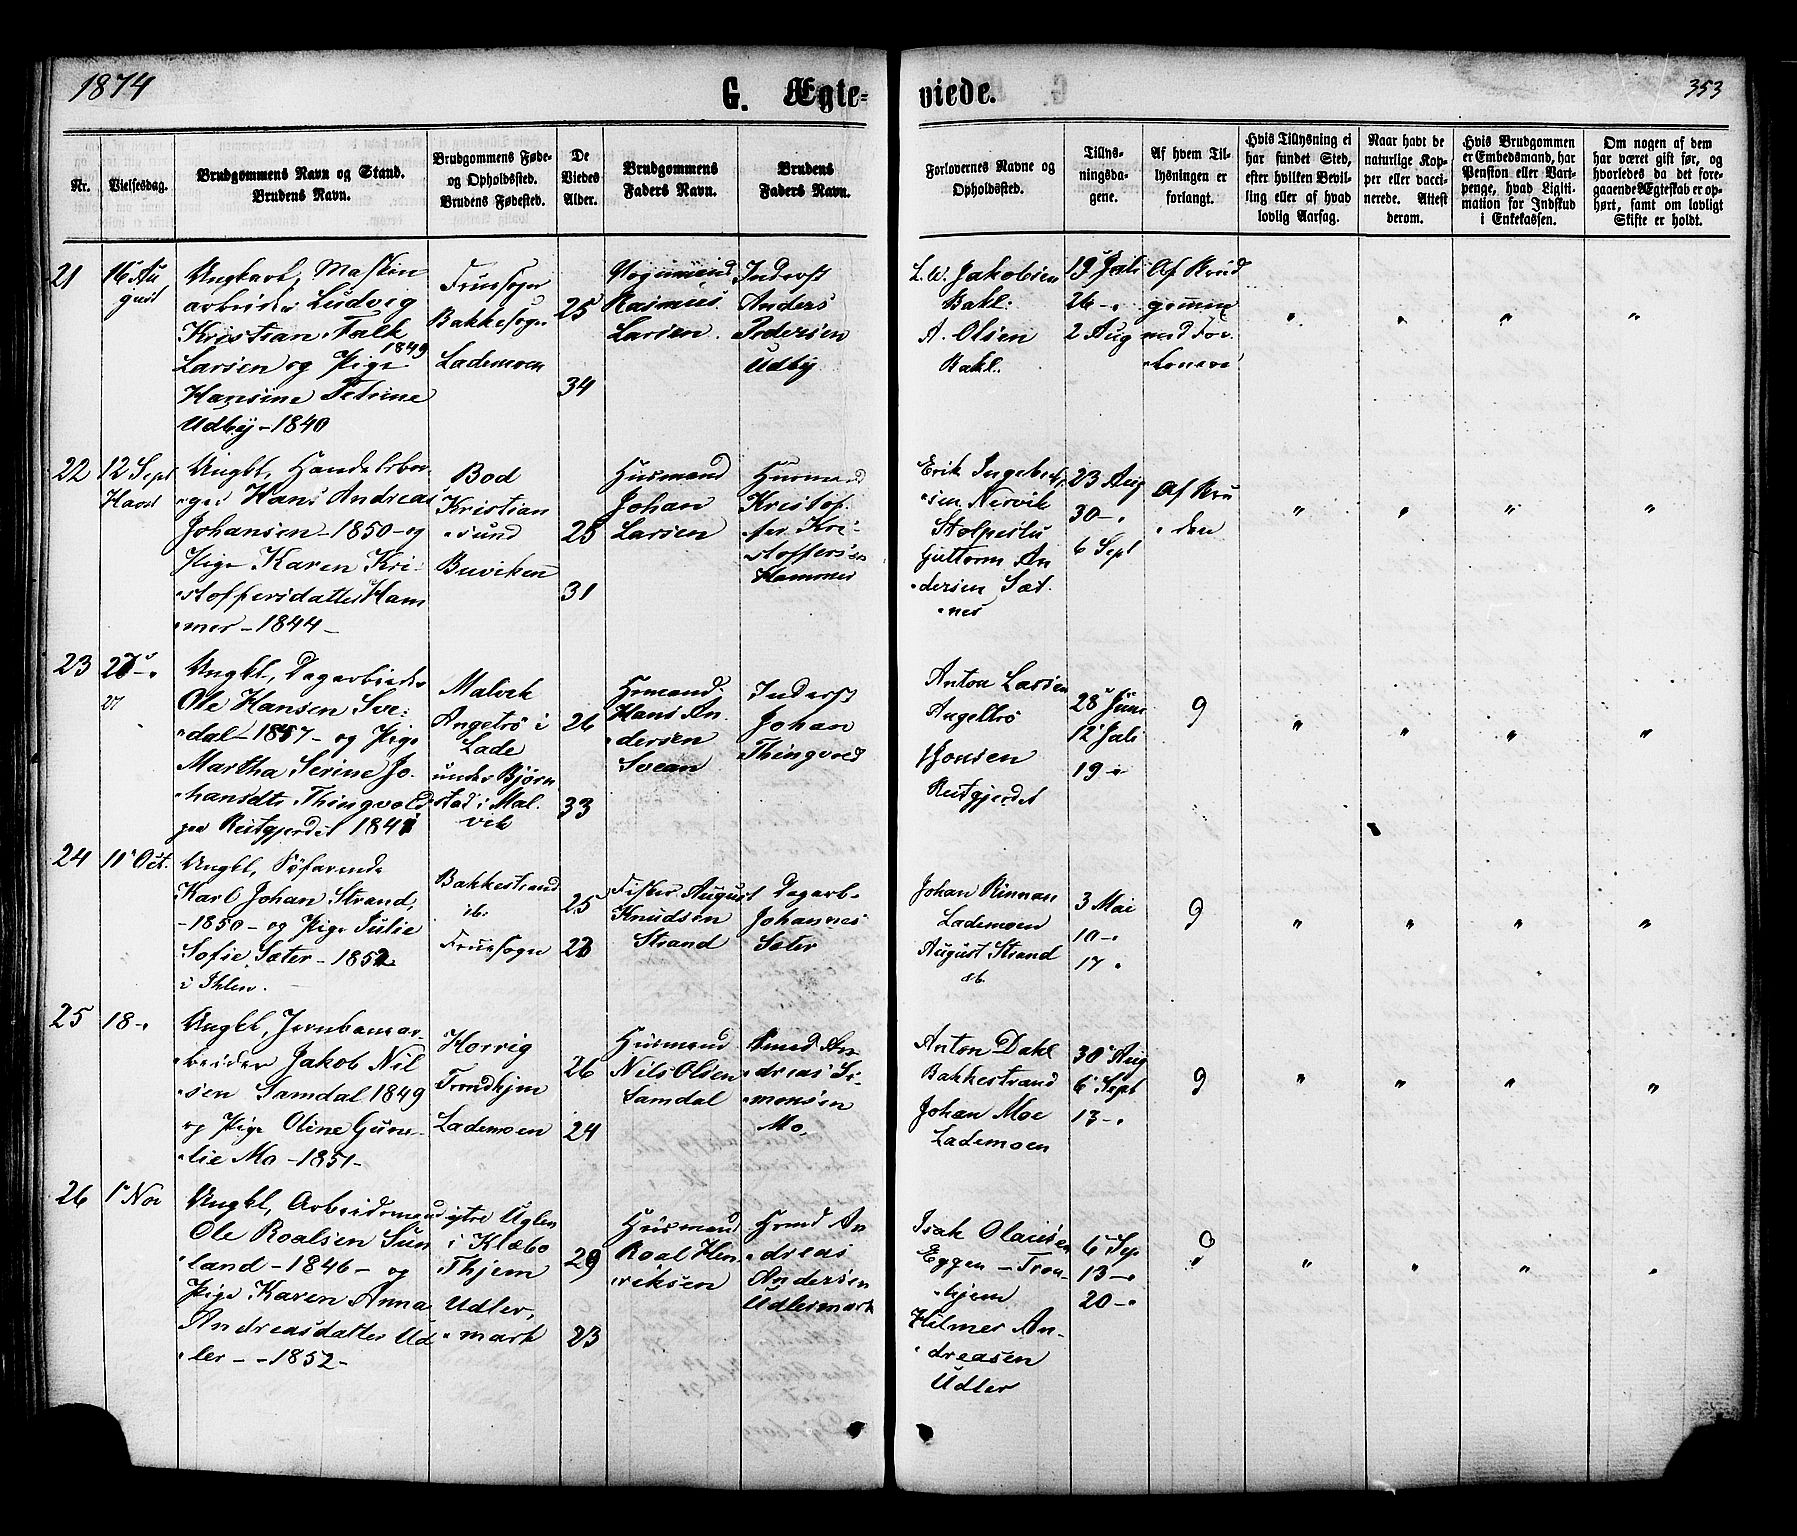 1874
G. Ægte-
viede.
353
Nr.
Vielsesdag.
Brudgommens Navn og Stand.
Brudens Navn.
Brudgommens Føde-
og Opholdssted.
Brudens Fødested.
De
Viedes
Alder.
Brudgommens
Faders Navn.
Brudens
Faders Navn.
Forlovernes Navne og
Opholdssted.
Tillys-
ningsda-
gene.
Af hvem Til-
lysningen er
forlangt.
Hvis Tillysning ei
har fundet Sted,
efter hvilken Bevil-
ling eller af hvad
lovlig Aarsag.
Naar havt de
naturlige Kop-
per eller vacci-
nerede. Attest
derom.
Hvis Brudgommen
er Embedsmand, har
Pension eller Vart-
penge, hvad Ligiti-
mation for Indskud
i Enkekassen.
Om nogen af dem
har været gift før, og
hvorledes da det fore-
gaaende Ægteskab er op-
hørt, samt om lovligt
Skifte er holdt.
21
16 Au
gust
Ungkarl, Maskin
arbeider Ludvig
Kristian Falk
Larsen og Pige 1849
Hansine Petrine
Udby - 1840
Fruesogn
Bakkesogn
Lademoen
25
34
Rasmus
Larsen
Inderst
Anders
Pedersen
Udby
L. W. Jakobsen
Bakl.
A. Olsen
Bakl.
19 Juli
26 - "
2 Aug
Af Brud
gommen
med For
" " " "
22
12 Sept
Ungkl, Handelsbor
"ger Hans Andreas
Johansen - 1850 - og
Pige Karen Kri-
"stoffersdatter Ham
"mer - 1844 -
Bod
Kristian
"sund
Buviken
25
31
Husmand
Johan
Larsen
Husmand
Kristof
"fer Kri-
"stoffersen
Hammer
Erik Ingebrigt
"sen Nervik
Guttorm An
"dersen Sæt
"nes
23 Aug
30 - "
6 Sept
Af Bru
" den
" " " "
23
27 - "
27
Ungkl, Dagarbeider
Ole Hansen Sve-
"dal - 1847 - og Pige
Martha Serine Jo-
"hansdtr Thingvold
paa Reitgjerdet 1841
Malvik
Angeltrø i
Lade
under Bjørn
stad i Mal-
vik
26
33
Hsmand
Hans An
"dersen
Svean
Inderst
Johan
Thingvold
Anton Larsen
Angeltrø
Reitgjerdet
28 Juni
12 Juli
19 - "
9
" " " "
24
11 Oct.
Ungkl, Søfarende
Karl Johan Strand
- 1850 - og Pige Julie
Sofie Sæter - 1852
i Ihlen.
Bakkestrand
ib.
Fruesogn
25
23
Fisker August
Knudsen
Strand
Dagarb-
Johannes
Sæter
Johan Rinnan
Lademoen
August Strand
sb.
3 Mai
10 - "
17 "
9
" " " "
25
18 - "
Ungkl, Jernbanear-
"beider Jakob Nil
"sen Samdal 1849
og Pige Oline Gune-
"lie Mo - 1851 -
Horrig
Trondhjem
Lademoen
26
24
Husmand
Nils Olsen
Samdal
Smed An
"dreas Si-
"monsen
Mo.
Anton Dahl
Bakkestrand
Johan Moe
Lademoen
30 Aug
6 Sept
13 - "
9
" " " "
26
1 Nov
Ungkl, Arbeidsmand
Ole Roalsen Sun
"land - 1846 - og
Pige Karen Anna
Andreasdatter Ud
"ler - - 1852 -
ytre Uglen
i Klæbo
Thjem
Udler,
"mark
29
23
Husmand
Roal Hen
"riksen
Hsmd An
"dreas
Andersen
Udlermark
Isak Olausen
Eggen - Tron
"hjem
Hilmer An-
"dreasen
Udler
6 Sep
13 - "
20 - "
9
" " " "